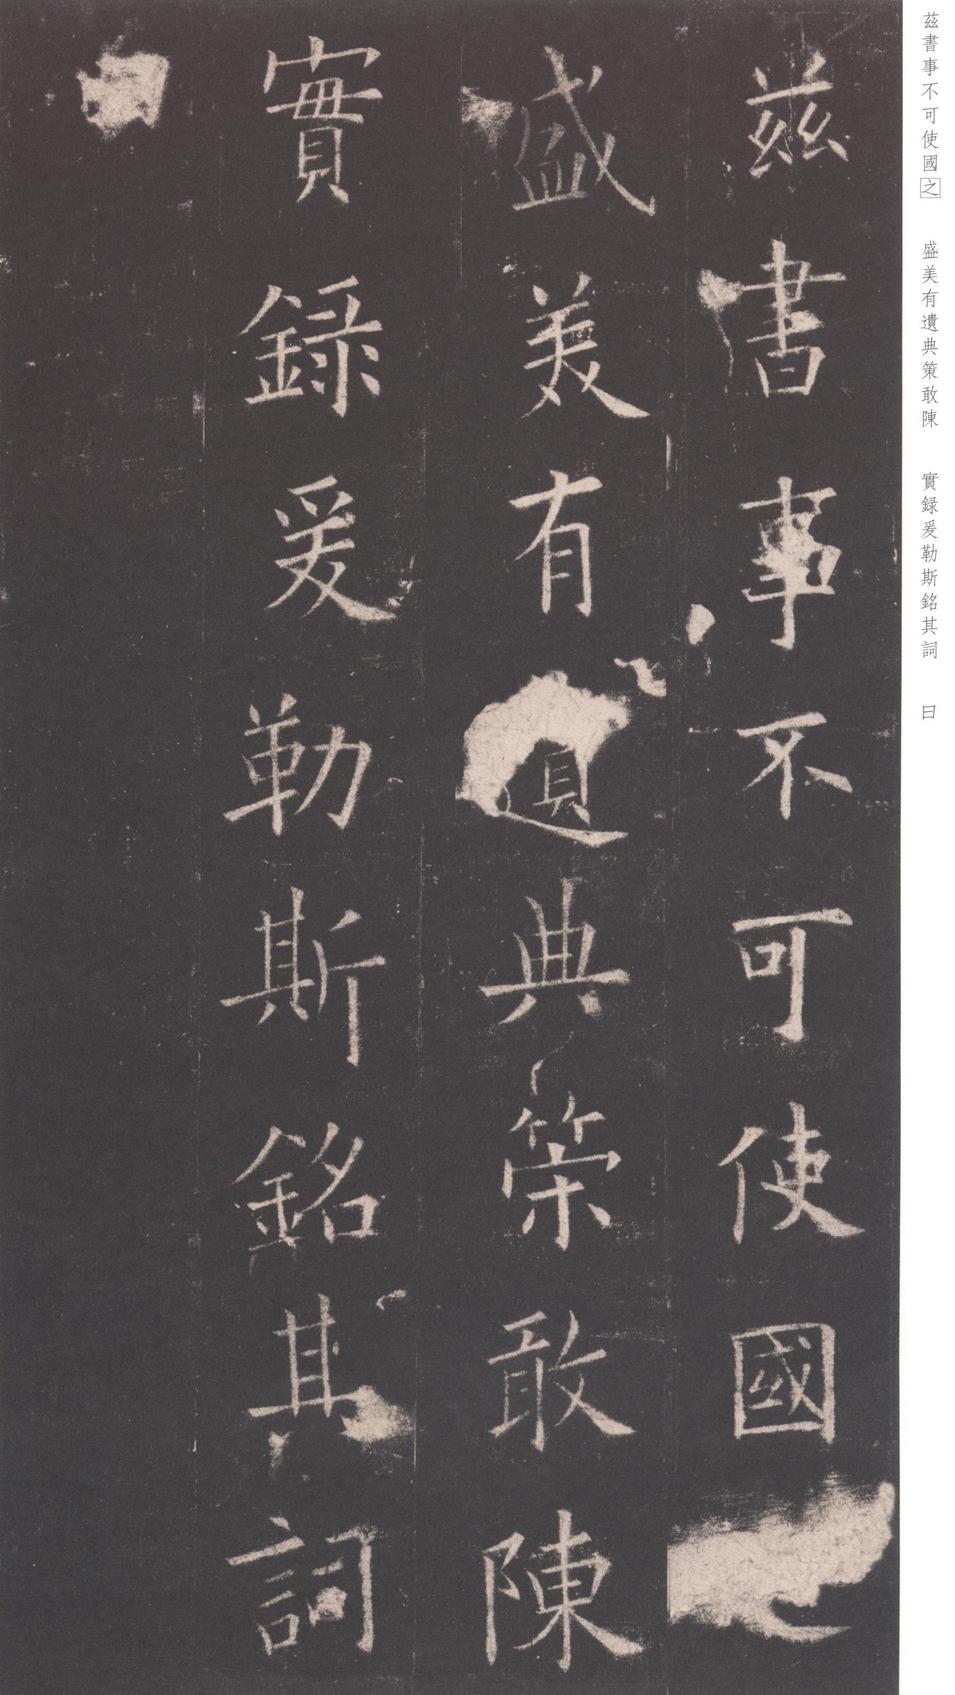 茲書事不可使國之　盛美有遺典策敢陳　實録爰勒斯銘其詞　曰
茲書事不可使國
盛美有遺典策敢陳
實録爰勒斯銘其詞